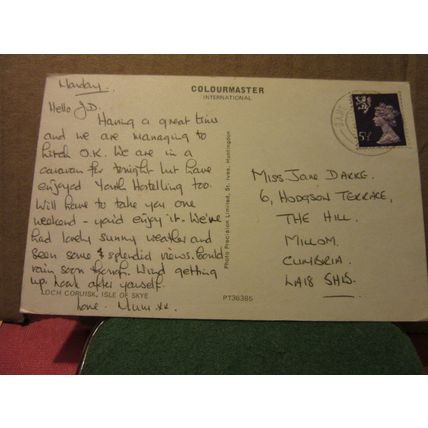 Monday.
COLOURMASTER
INTERNATIONAL
Hello J.D.
Having a great time
and we are managing to
hitch O.K. We are in a
caravan for tonight but have
enjoyed Youth Hostelling too.
Will have to take you one
weekend - you'd enjoy it. We've
had lovely sunny weather and
seen some splendid views. Could
rain soon though. Wind getting
up. Look after yourself.
Love. Mum. xx.
LOCH CORUISK, ISLE OF SKYE
PT36365
Photo Precision Limited, St. Ives, Huntingdon
5½
MISS JANE DARKE.
6, HODGSON TERRACE,
THE HILL.
MILLOM.
CUMBRIA.
LA18